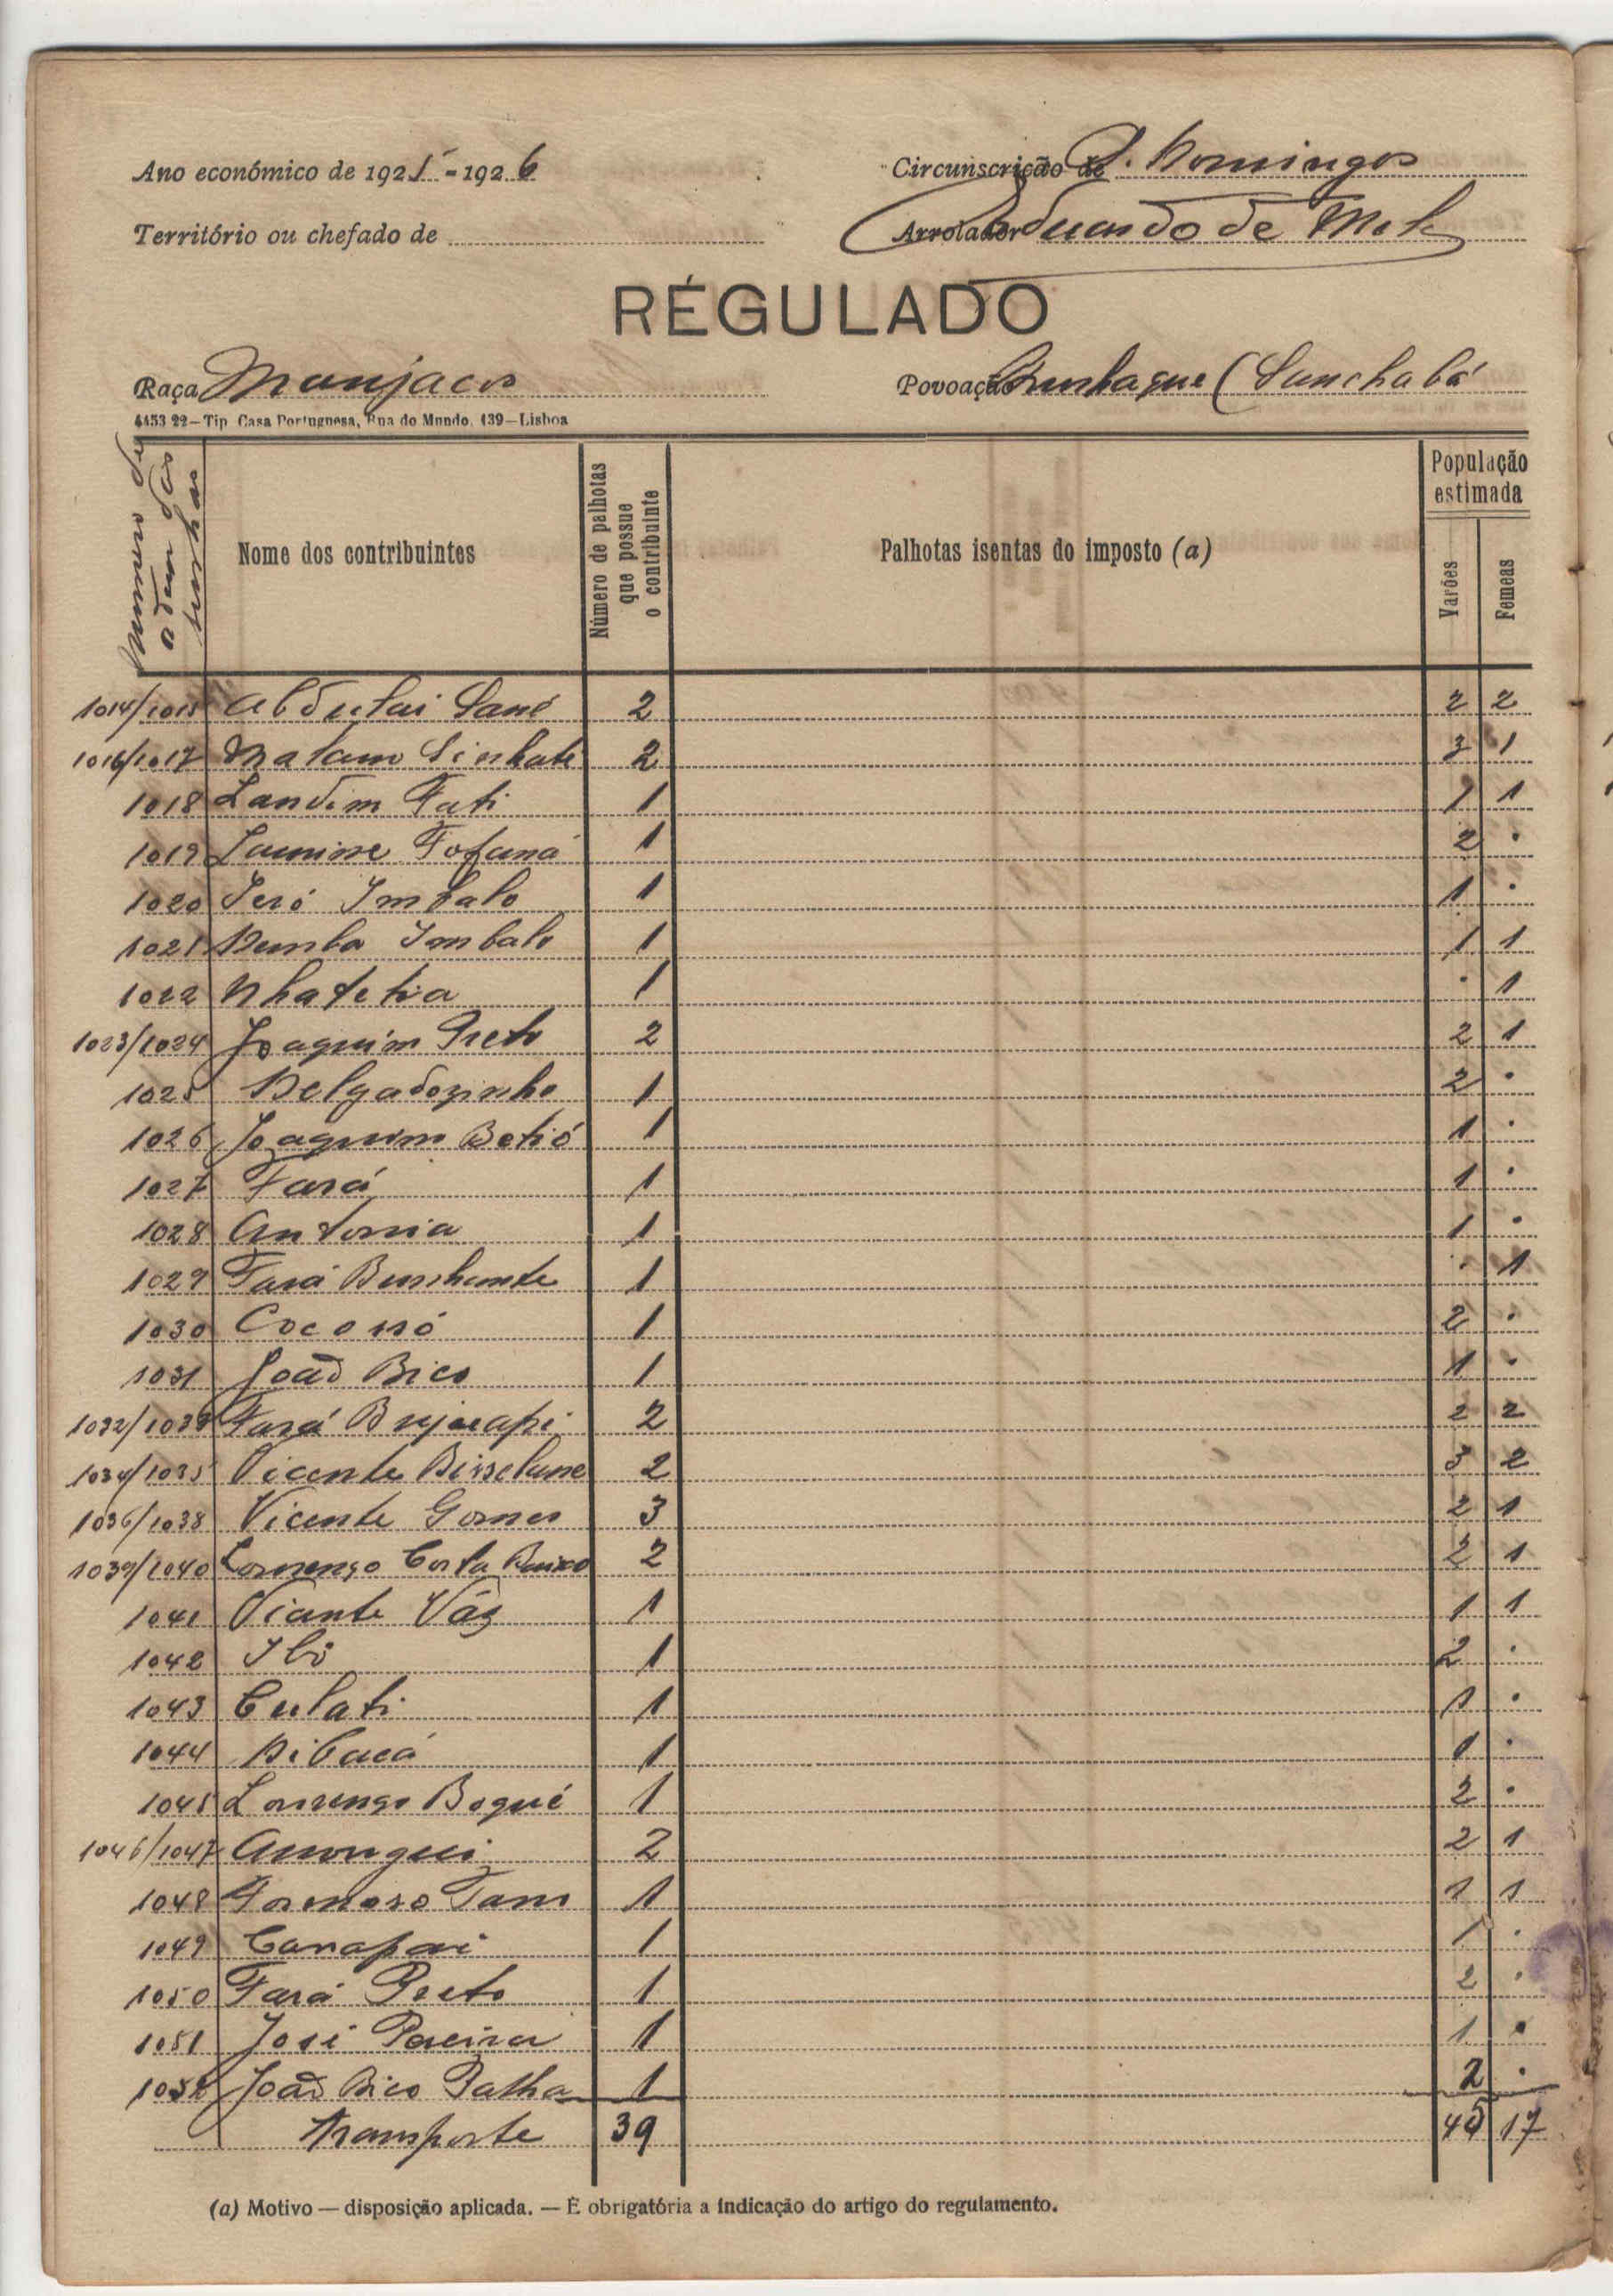 Ano económico de 1925-1926
Circunscrição de S. Domingos
Território ou chefado de
Arrolador Eduardo de Melo
RÉGULADO
Raça Manjacos
Povoação (Sunchabá
4453 22—Tip Casa Portuguesa, Rua do Mundo, 139—Lisboa
Numero de ordem das senhas
Nome dos contribuintes
Número de palhotas que possue o contribuinte
Palhotas isentas do imposto (a)
População estimada
Varões
Femeas
1014/1015 Abdulai Sané 2 2 2
1016/1017 Malam Sinhate 2 3 1
1018 Landim Fati 1 1 1
1019 Lamine Fofaná 1 2 .
1020 Jeró Imbalo 1 1 .
1021 Demba Imbalo 1 1 1
1022 1 . 1
1023/1024 Joaquim Preto 2 2 1
1025 Delgadozinho 1 2 .
1026 Joaquim Betió 1 1 .
1027 Fará 1 1 .
1028 Antonia 1 1 .
1029 Fará 1 . 1
1030 1 2 .
1031 João Bico 1 1 .
1032/1033 Fará 2 2 2
1034/1035 Vicente 2 3 2
1036/1038 Vicente Gomes 3 2 1
1039/1040 Lourenço Costa 2 2 1
1041 Vicente Váz 1 1 1
1042 1 2 .
1043 Culati 1 1 .
1044 1 1 .
1045 Lourenço Boqué 1 2 .
1046/1047 2 2 1
1048 1 1 1
1049 1 1 .
1050 Fará Preto 1 2 .
1051 José Pereira 1 1 .
1052 João Bico Palha 1 2 .
Transporte 39 45 17
(a) Motivo — disposição aplicada. — É obrigatória a indicação do artigo do regulamento.